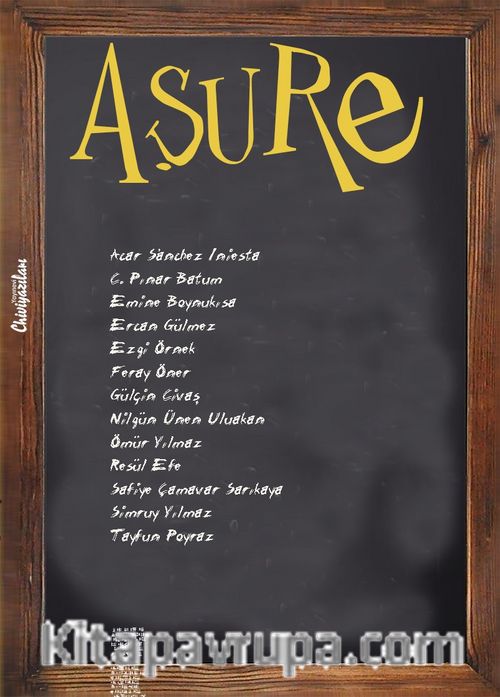 AŞURE
Acar Sànchez Iniesta
C. Pınar Batum
Emine Boynukısa
Ercan Gülmez
Ezgi Örnek
Feray Ömer
Gülçin Civaş
Nilgün Ünen Uluakan
Ömür Yılmaz
Resül Efe
Safiye Çamavar Sarıkaya
Simruy Yılmaz
Tayfun Poyraz
Chiviyazıları
Kitapavrupa.com